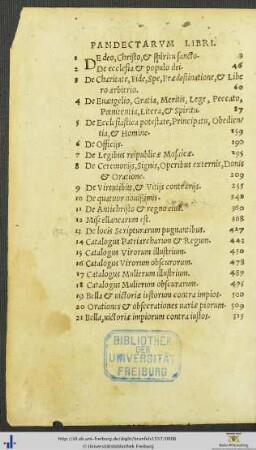 PANDECTARVM LIBRI.
1 DE deo, Christo, & spiritu sancto. 9
2 De ecclesia & populo dei. 46
3 De Charitate, Fide, Spe, Prædestinatione, & Libe
ro arbitrio. 60
4 De Euangelio, Gratia, Meritis, Lege, Peccato,
Pœnitentia, Litera, & Spiritu. 87
5 De Ecclesiastica potestate, Principatu, Obedien
tia, & Homine. 159
6 De Officijs. 190
7 De Legibus reipublicæ Mosaicæ. 205
8 De Ceremonijs, Signis, Operibus externis, Donis
& Oratione. 230
9 De Virtutibus, & Vitijs contrarijs. 255
10 De quatuor nouissimis. 548
11 De Antichristo & regno eius. 360
12 Miscellanearum est. 388
13 De locis Scripturarum pugnantibus. 427
14 Catalogus Patriarcharum & Regum. 442
15 Catalogus Virorum illustrium. 450
16 Catalogus Virorum obscurorum. 478
17 Catalogus Mulierum illustrium. 487
18 Catalogus Mulierum obscurarum. 495
19 Bella & victoriæ iustorum contra impios. 500
20 Orationes & obsecrationes uariæ piorum 509
21 Bella, uictoriæ impiorum contra iustos. 515
BIBLIOTHEK
DER
UNIVERSITÄT
FREIBURG
© Universitätsbibliothek Freiburg